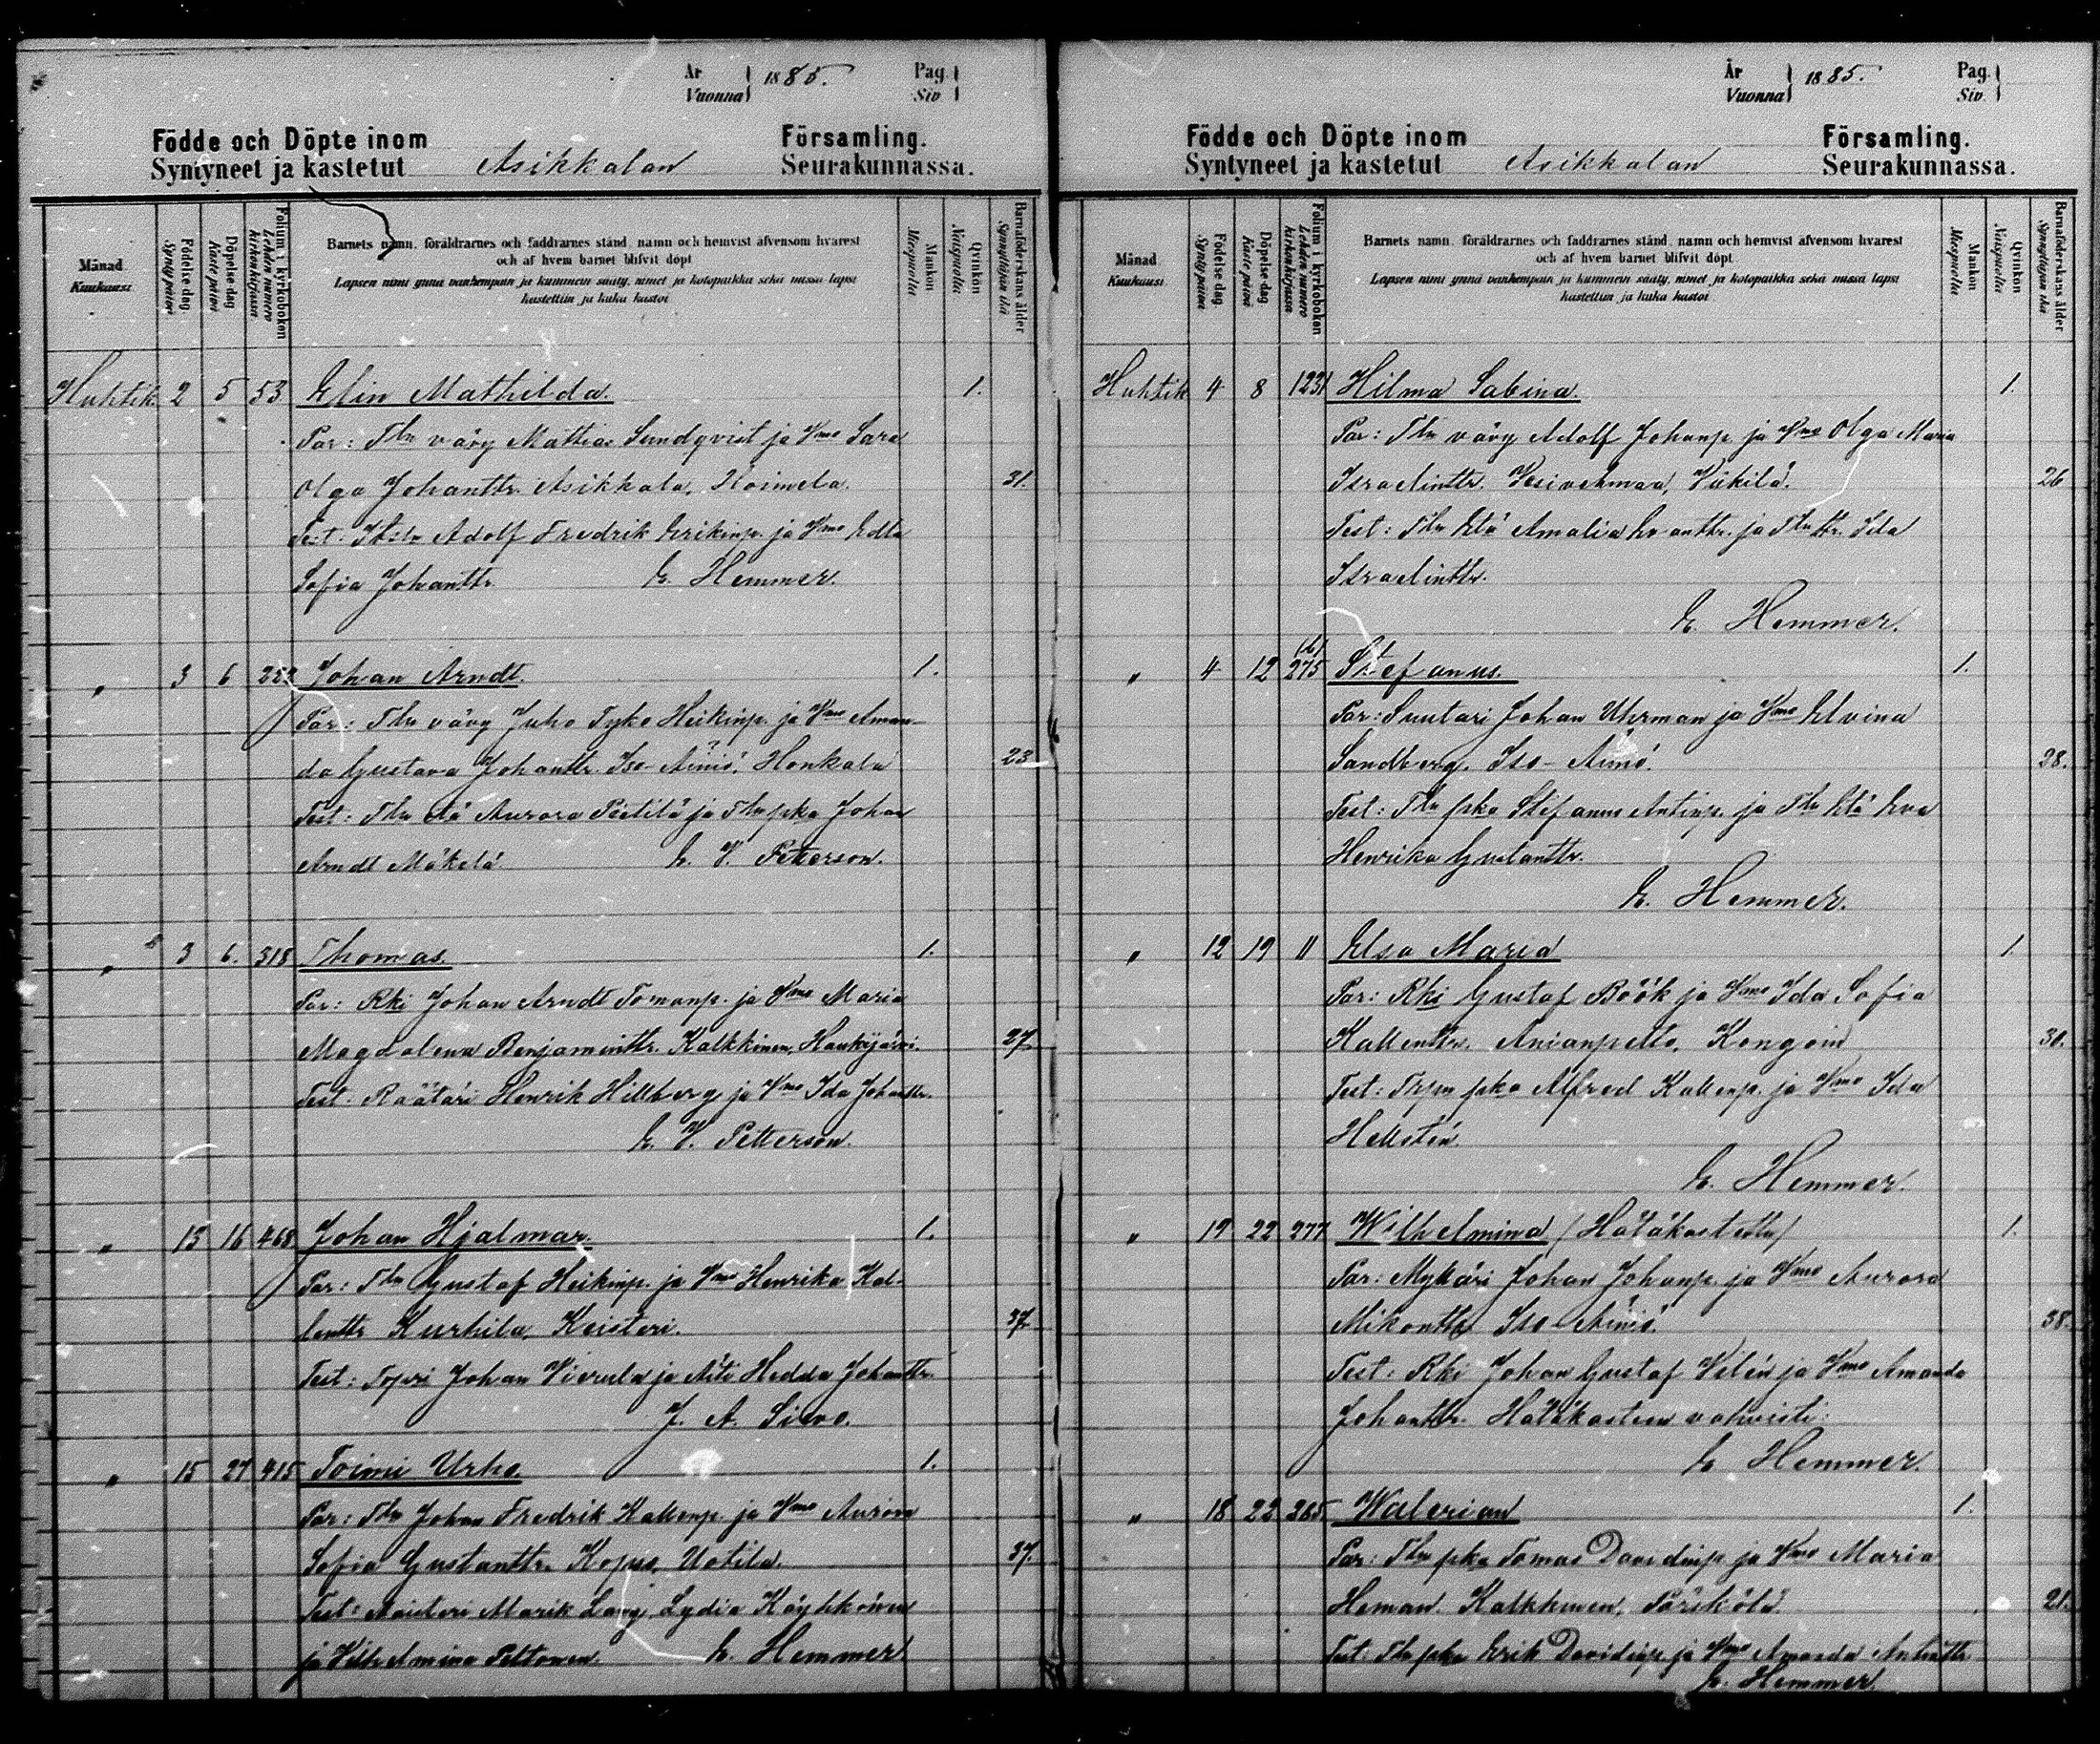 År
Vuonna
1885.
Pag.
Siv
Födde och Döpte inom
Syntyneet ja kastetut
Asikkalan
Församling.
Seurakunnassa.
Månad
Kuukausi
Födelse dag
Synty päivä
Döpelse dag
Kaste päivä
Folium i kyrkoboken
Lehden numero kirkonkirjassa
Barnets namn, föräldrarnes och faddrarnes stånd, namn och hemvist äfvensom hvarest
och af hvem barnet blifvit döpt
Lapsen nimi ynnä vanhempain ja kummein sääty, nimet ja kotopaikka sekä missä lapsi
kastettiin ja kuka kastoi
Mankön
Miespuolia
Qvinkön
Naispuolia
Barnaföderskans ålder
Synnyttäjän ikä
Huhtik 2 5 53 Elin Mathilda. 1.
Par: Tln vävy Mattias Sundqvist ja Vmo Sara
Olga Johanttr. Asikkala, Hoimela. 31.
Test: Adolf Fredrik Erikinp. ja Vmo Edla
Sofia Johanttr. E. Hemmer.
" 3 6 Johan Arndt. 1.
Par: Tln vävy Juho Tyko Heikinp. ja Vmo Aman-
da Gustava Johanttr. Iso-Äiniö, Honkala 23
Test: Tln etä Aurora Peltilä ja Tln pka Johan
Arndt Mäkelä E. V. Petterson.
" 3 6. 318 Thomas. 1.
Par: Rki Johan Arndt Tomanp. ja Vmo Maria
Magdalena Benjaminttr. Kalkkinen, Haukijärvi. 27
Test: Räätäri Henrik Hillberg ja Vmo Ida Johanttr.
E. V. Petterson.
" 13 16 468 Johan Hjalmar. 1.
Par: Tln Gustaf Heikinp. ja Vmo Henrika Kal-
lenttr Kurhila, Keisteri. 37
Test: Topri Johan Vierula ja Äiti Hedda Johanttr.
J. A. Sievo.
" 15 27 415 Toimi Urho 1.
Par: Tln Johan Fredrik Kallenp. ja Vmo Aurora
Sofia Gustanttr. Kopus, Uotila. 37.
Test: Maisteri Marik Lang, Lydia Käyhkönen
ja Vilhelmina Peltonen. E. Hemmer
År
Vuonna
1885.
Pag.
Siv.
Födde och Döpte inom
Syntyneet ja kastetut
Asikkalan
Församling.
Seurakunnassa.
Månad
Kuukausi
Födelse dag
Synty päivä
Döpelse dag
Kaste päivä
Folium i kyrkoboken
Lehden numero kirkonkirjassa
Barnets namn, föräldrarnes och faddrarnes stånd, namn och hemvist äfvensom hvarest
och af hvem barnet blifvit döpt
Lapsen nimi ynnä vanhempain ja kummein sääty, nimet ja kotopaikka sekä missä lapsi
kastettiin ja kuka kastoi
Mankön
Miespuolia
Qvinkön
Naispuolia
Barnaföderskans ålder
Synnyttäjän ikä
Huhtik 4 8 1231 Hilma Sabina. 1.
Par: Tln vävy Adolf Johanp. ja Vmo Olga Maria
Israelinttr. Vesivehmaa, Vükilä. 26
Test: Tln etä Amalia Evanttr. ja Tln ttr. Ida
Israelinttr.
E. Hemmer.
" 4 12 275 Stefanus. 1.
Par: Suutari Johan Uhrman ja Vmo Elvina
Sandberg. Iso-Äiniö. 28.
Test: Tln pka Stefanus Antinp. ja Tln etä Eva
Henrika Gustanttr.
E. Hemmer.
" 12 19 11 Elsa Maria 1.
Par: Rki Gustaf Böök ja Vmo Ida Sofia
Kallenttr. Anianpelto, Kongoin 30.
Test: pka Alfred Kallenp. ja Vmo Ida
Hellstén.
E. Hemmer.
" 19 22 277 Wilhelmina (Hätäkastettu) 1.
Par: Mylläri Johan Johanp. ja Vmo Aurora
Mikonttr Iso-Äiniö. 38.
Test: Rki Johan Gustaf Vilén ja Vmo Amanda
Johanttr. Hätäkasteen vahvisti:
E Hemmer.
" 18 22 265 Walerian 1.
Par: Tln pka Tomas Davidinp. ja Vmo Maria
Heman. Kalkkinen, Särskölä. 21.
Test: Tln pka Erik Davidinp. ja Vmo Amanda Antinttr.
E. Hemmer